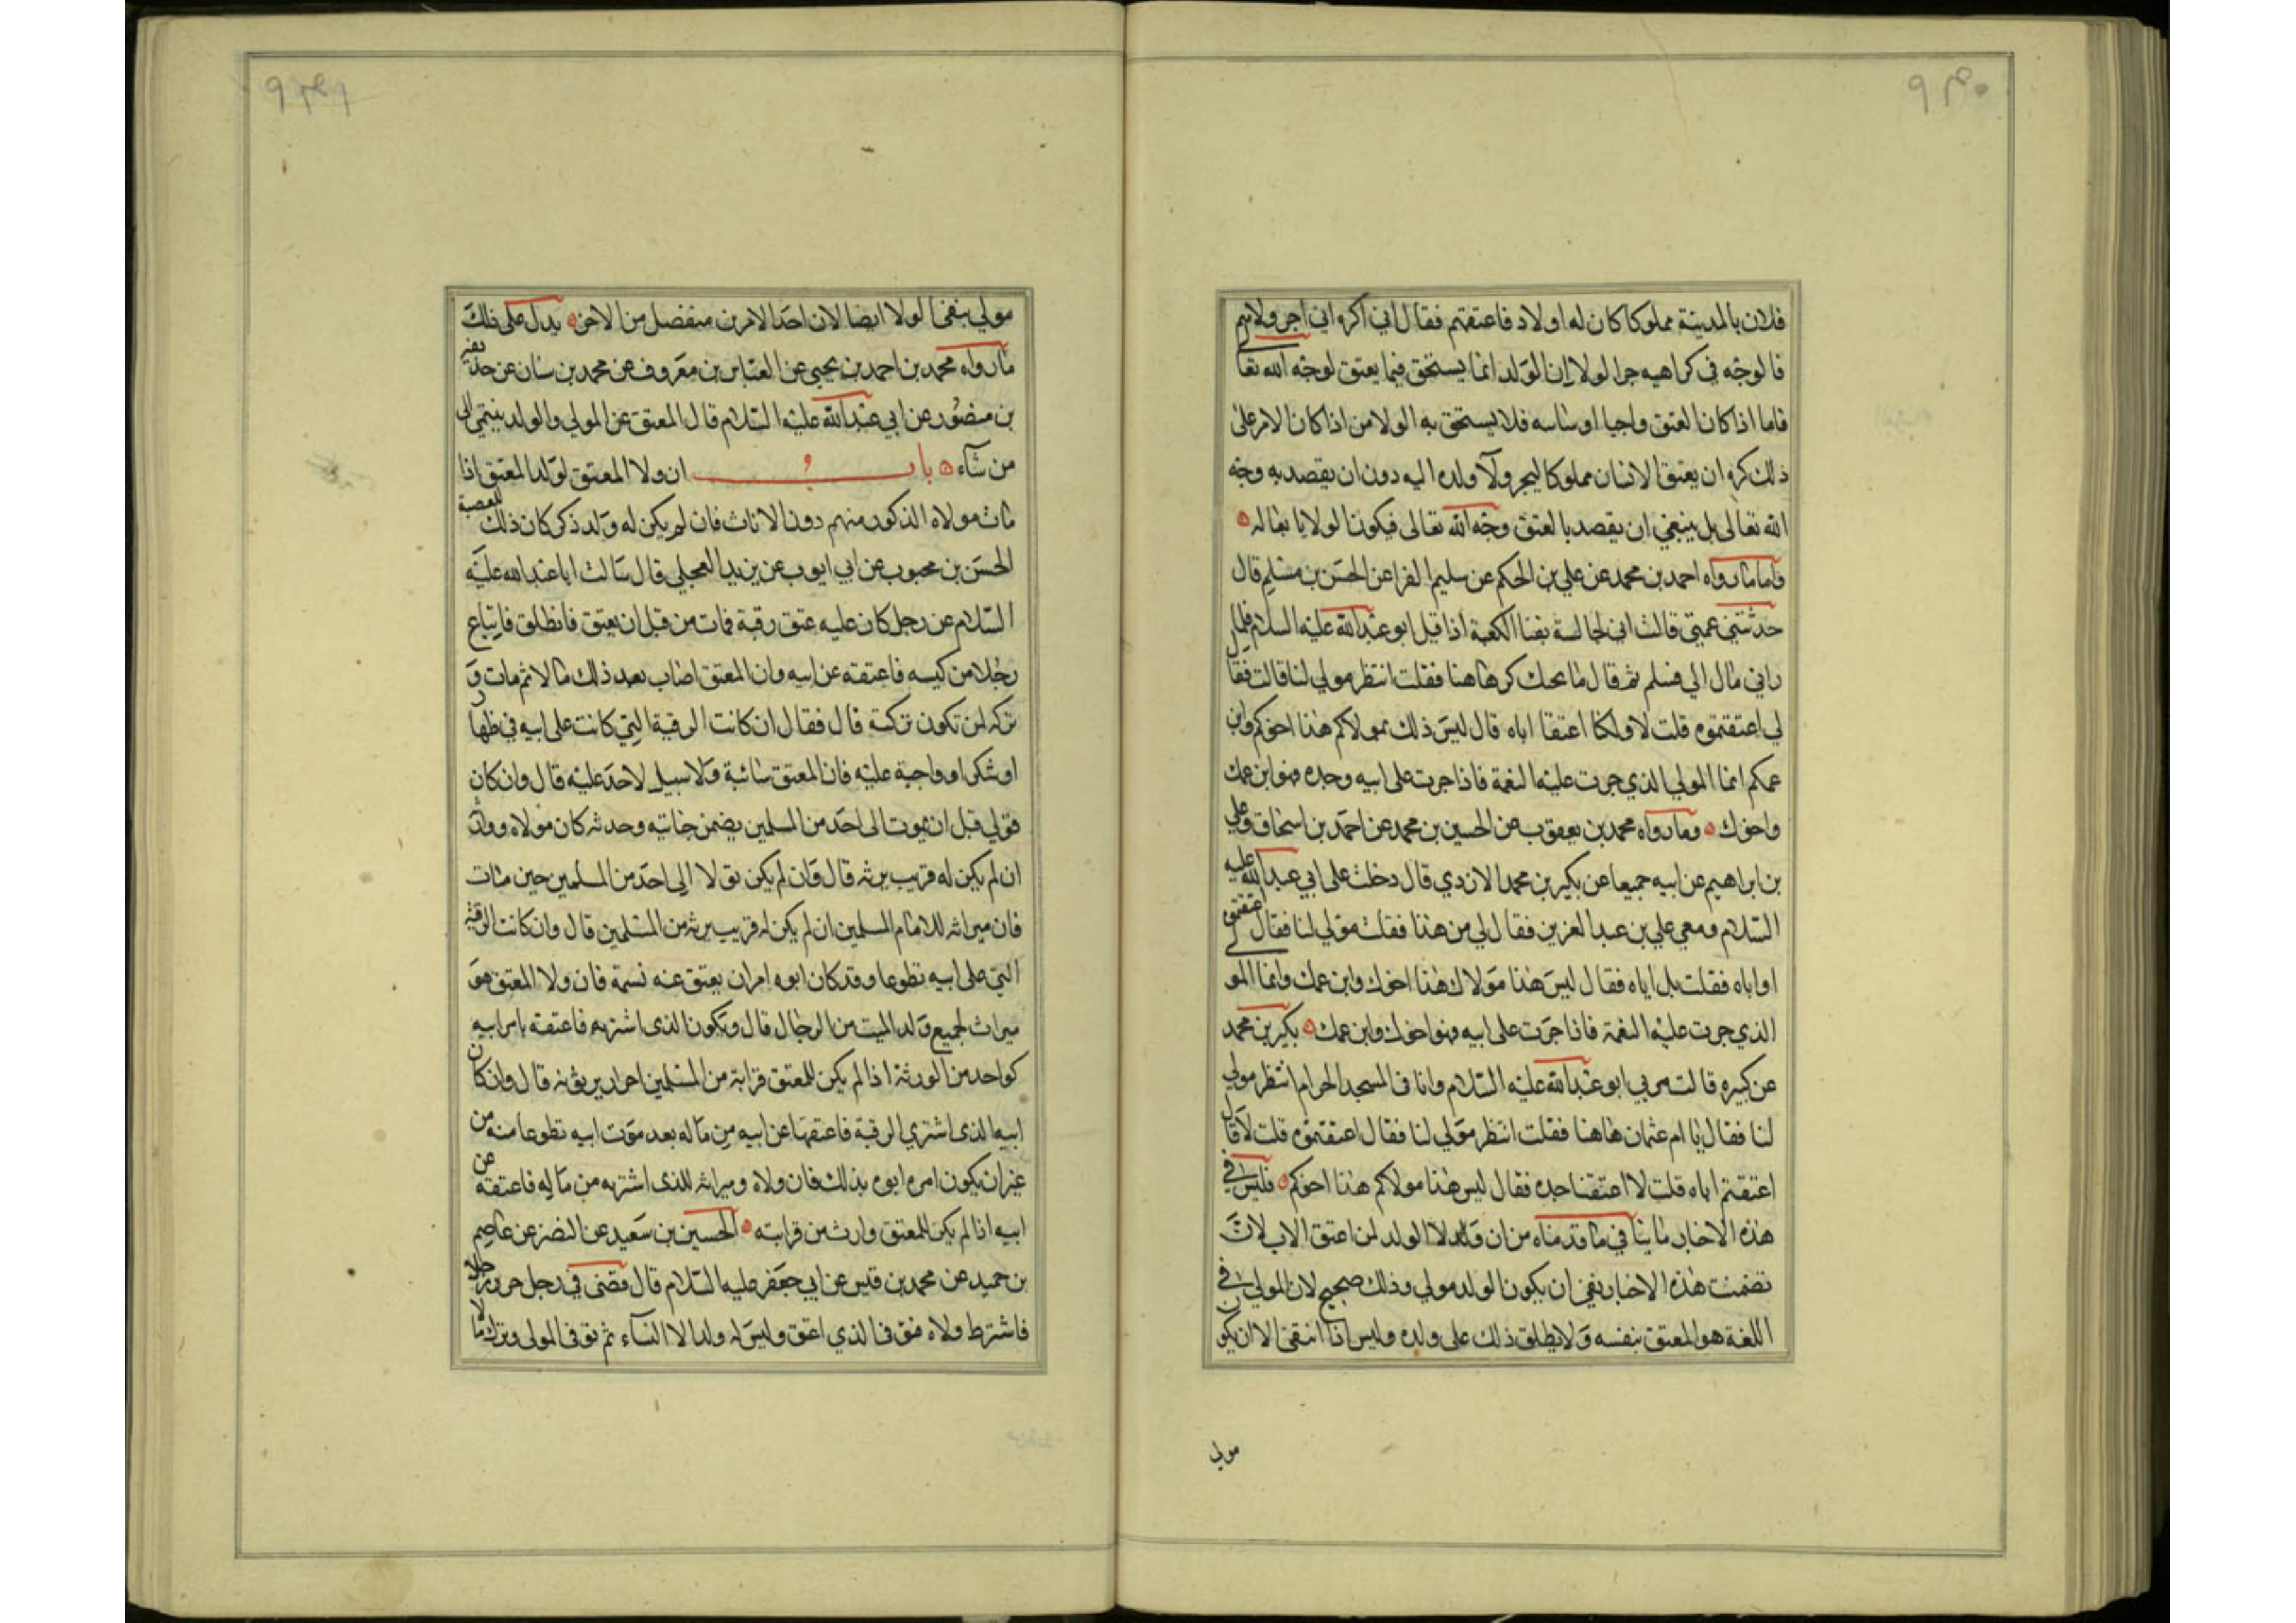 ۹۴۰
فلان بالمدينة مملوكا كان له اولاد فاعتقتهم فقال اني اكره اني اجر ولاءهم
فالوجه في كراهيه جر الولا ان الولد انما يستحق فيما يعتق لوجه الله تعا
فاما اذا كان العتق واجبا او سائبه فلا يستحق به الولا من اذا كان الامر على
ذلك كره ان يعتق الانسان مملوكا ليجر ولآ ولده اليه دون ان يقصد به وجه
الله تعالى بل ينبغي ان يقصد بالعتق وجه الله تعالى فيكون الولا تابعا له
فاما ما رواه احمد بن محمد عن علي بن الحكم عن سليم الفرا عن الحسن بن مسلم قال
حدثتني عمتي قالت اني لجالسة بفنا الكعبة اذا قبل ابو عبد الله عليه السلام فلما
راني مال الي فسلم ثم قال ما يحبسك هاهنا فقلت انتظر مولي لنا قالت فقال
لي اعتقتموه قلت لا ولكنا اعتقنا اباه قال ليس ذلك بمولاكم هذا اخوكم وابن
عمكم انما المولي الذي جرت عليه النعمة فاذا جرت على ابيه وجده فهو ابن عمك
واخوك وما رواه محمد بن يعقوب عن الحسين بن محمد عن احمد بن اسحاق وعلي
بن ابراهيم عن ابيه جميعا عن بكر بن محمد الازدي قال دخلت على ابي عبد الله عليه
السلام ومعي علي بن عبد العزيز فقال لي من هذا فقلت مولي لنا فقال اعتقتموه
او اباه فقلت بل اباه فقال ليس هذا مولاك هذا اخوك وابن عمك وانما المو
الذي جرت عليه النعمة فاذا جرت على ابيه فهو اخوك وابن عمك بكر بن محمد
عن كبيره قالت مر بي ابو عبد الله عليه السلام وانا في المسجد الحرام انتظر مولي
لنا فقال يا ام عثمان هاهنا فقلت انتظر مولي لنا فقال اعتقتموه قلت لا قال
اعتقتم اباه قلت لا اعتقنا جده فقال ليس هذا مولاكم هذا اخوكم فليس في
هذه الاخبار ما ينافي ما قدمناه من ان ولا الولد لمن اعتق الاب لان
تضمنت هذه الاخبار نفي ان يكون الولد مولي وذلك صحيح لان المولي في
اللغة هو المعتق بنفسه ولا يطلق ذلك على ولده وليس اذا انتفى الا ان يكون
مولي
۹۴۱
مولي ينفي الولا ايضا لان احد الامرين منفصل من الاخر يدل على ذلك
ما رواه محمد بن احمد بن يحيى عن العباس بن معروف عن محمد بن سنان عن حذيفة
بن منصور عن ابي عبد الله عليه السلام قال المعتق عن المولي والولد ينتمي الى
من شآء باب ان ولا المعتق لولد المعتق اذا
مات مولاه الذكور منهم دون الاناث فان لم يكن له ولد ذكر كان ذلك للعصبة
الحسن بن محبوب عن ابي ايوب عن بريد العجلي قال سالت ابا عبد الله عليه
السلام عن رجل كان عليه عتق رقبة فمات من قبل ان يعتق فانطلق فابتاع
رجلا من كيسه فاعتقه عن ابيه وان المعتق اصاب بعد ذلك مالا ثم مات و
تركه لمن تكون تركته قال فقال ان كانت الرقبة التي كانت على ابيه في ظهار
او شكر او واجبة عليه فان المعتق سائبة ولا سبيل لاحد عليه قال وان كان
تولي قبل ان يموت الى احد من المسلمين يضمن جنايته وحدثه كان مولاه ووارثه
ان لم يكن له قريب يرثه قال وان لم يكن تولا الى احد من المسلمين حين مات
فان ميراثه للامام المسلمين ان لم يكن له قريب يرثه من المسلمين قال وان كانت الرقبة
التي على ابيه تطوعا وقد كان ابوه امر ان يعتق عنه نسمة فان ولا المعتق هو
ميراث لجميع ولد الميت من الرجال قال ويكون الذي اشتريه فاعتقه بامر ابيه
كواحد من الورثة اذا لم يكن للمعتق قرابة من المسلمين احرار يرثونه قال وان كان
ابيه الذي اشتري الرقبة فاعتقها عن ابيه من ماله بعد موت ابيه تطوعا منه من
غير ان يكون امره ابوه بذلك فان ولاه وميراثه للذي اشتريه من ماله فاعتقه عن
ابيه اذا لم يكن للمعتق وارث من قرابته الحسين بن سعيد عن النضر عن عاصم
بن حميد عن محمد بن قيس عن ابي جعفر عليه السلام قال قضى في رجل حرر رجلا
فاشترط ولاه فتوفى الذي اعتق وليس له ولد الا النسآء ثم توفى المولى وترك مالا